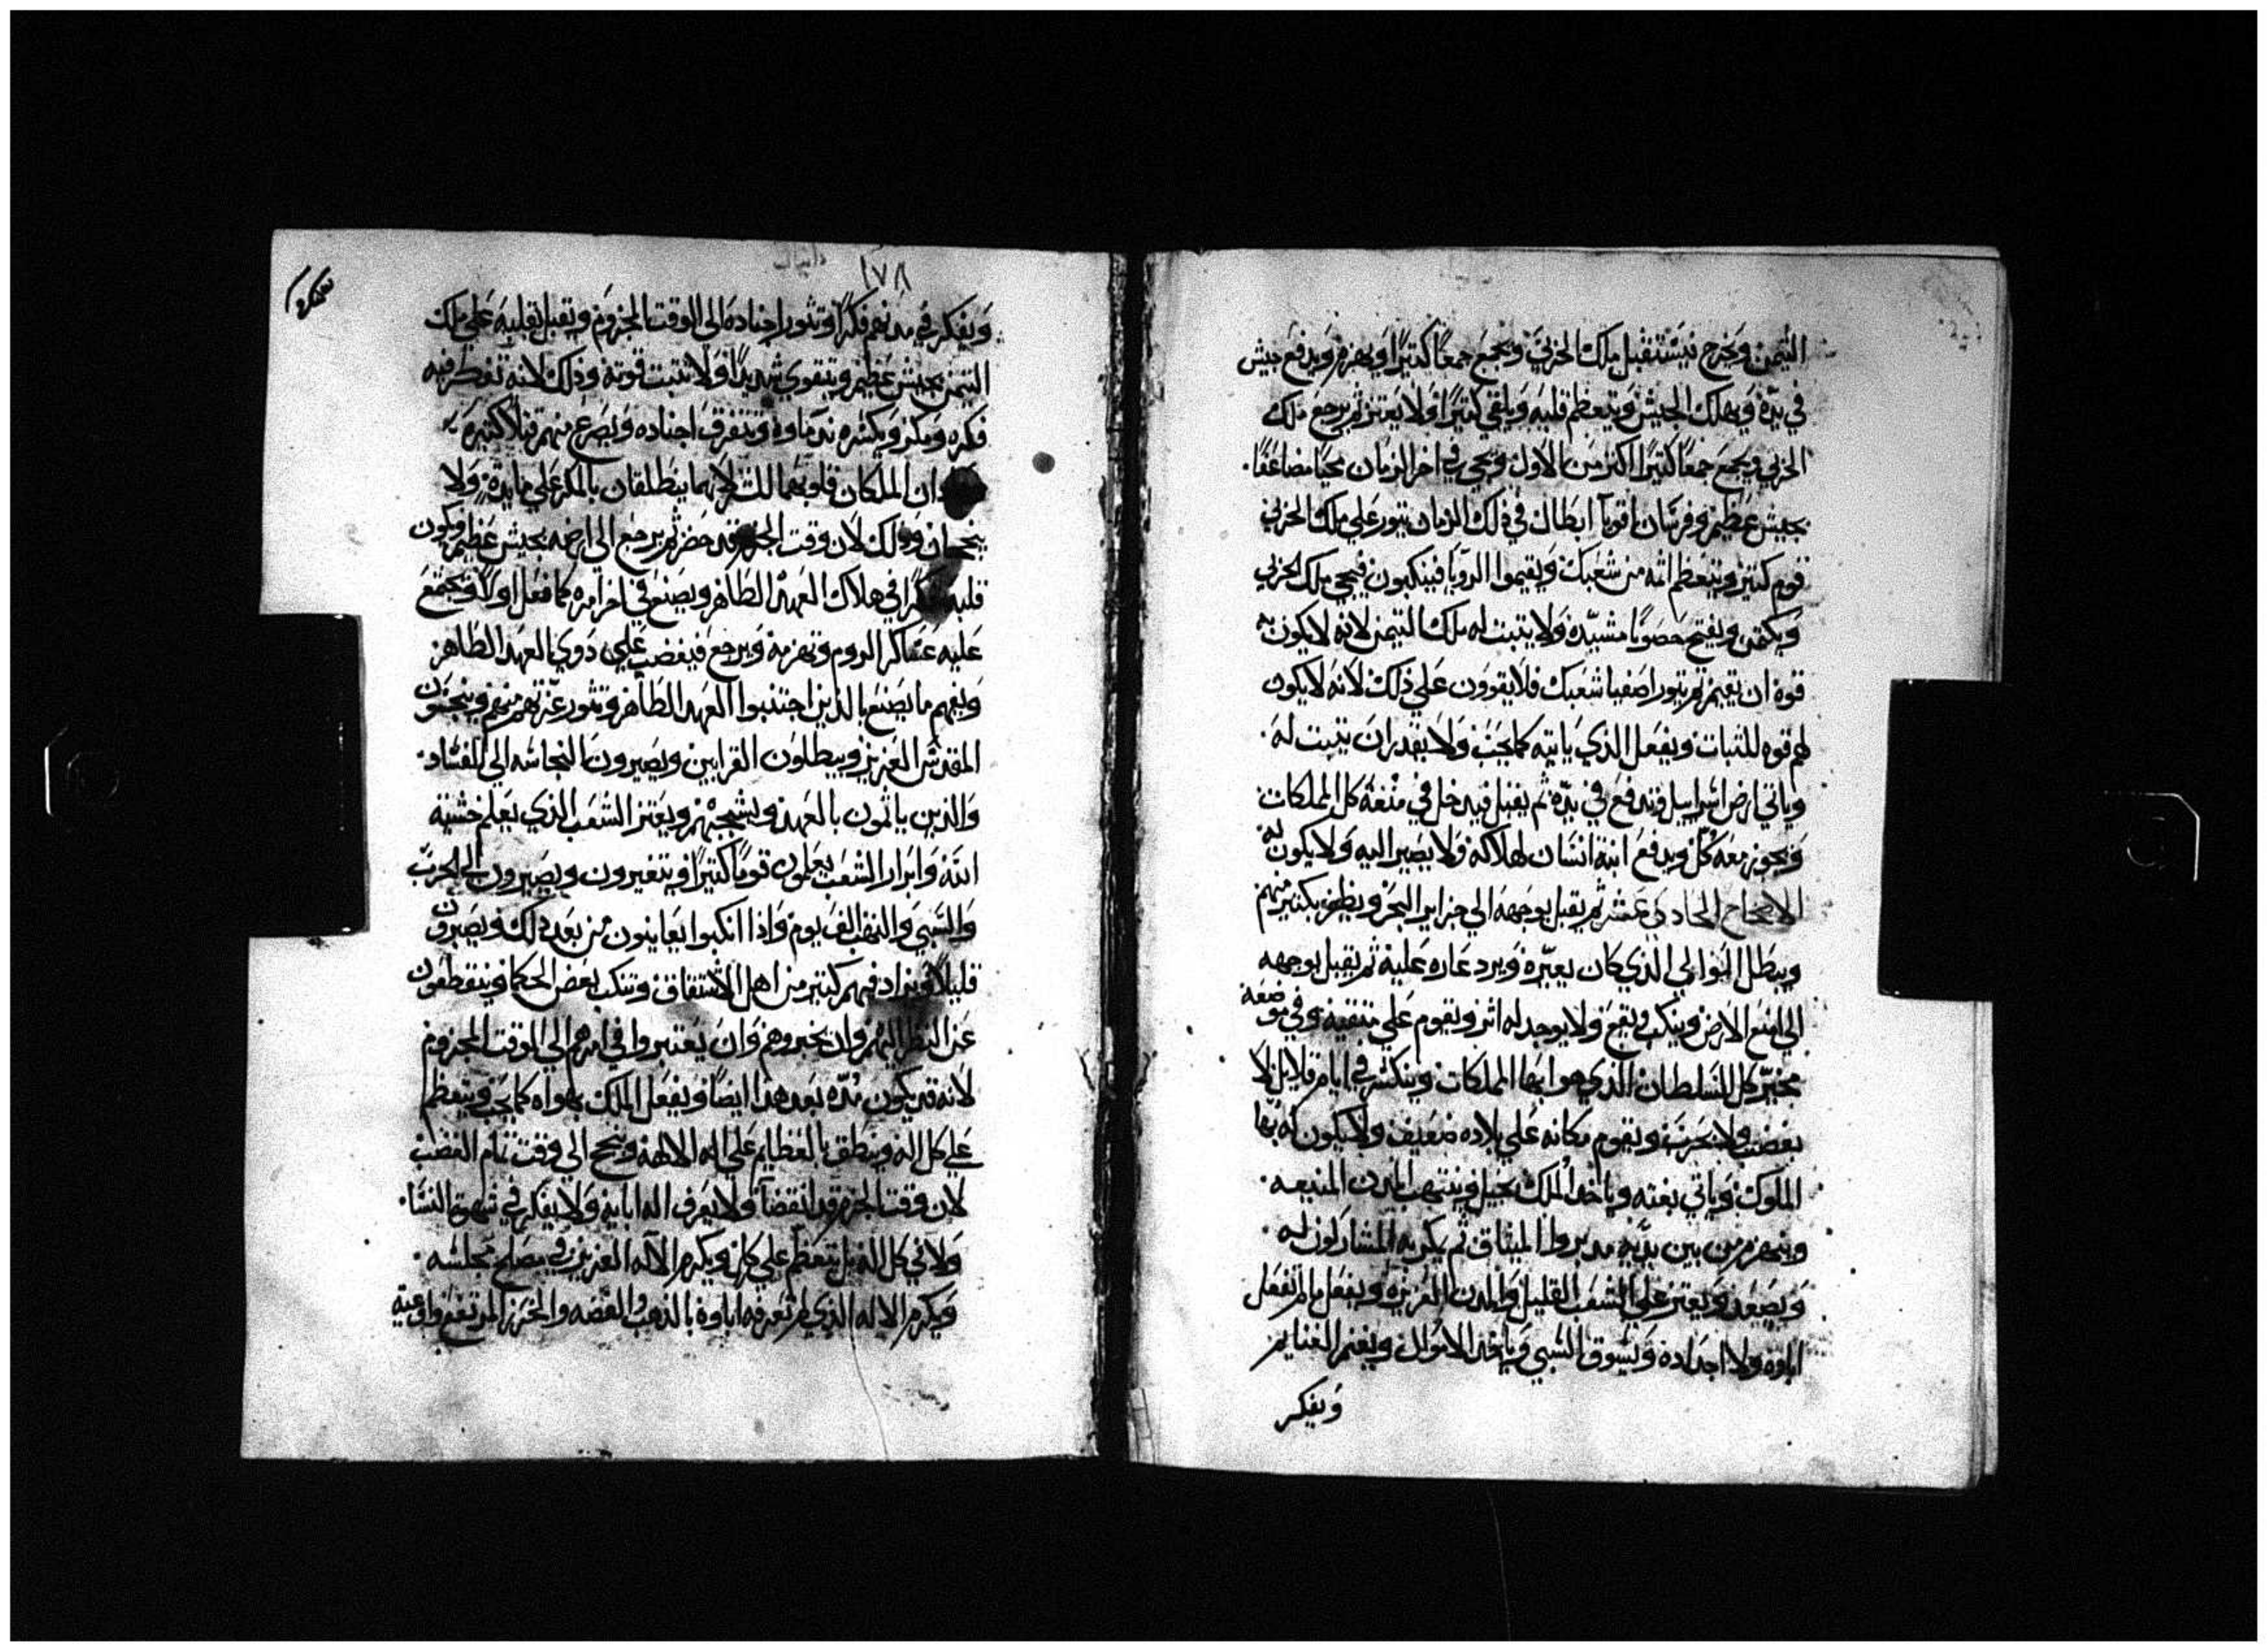 التيمن ويخرج فيستقبل ملك الجزبي ويجمع جمعاً كثيراً ويهزم ويدفع جيش
في يده ويهلك الجيش ويتعظم قلبه ويلقي كثيراً ولا يعتز ثم يرجع ملك
الجزبي ويجمع جمعاً كثيراً اكثر من الاول ويجي في اخر الزمان مجيا مضاعفا
بجيش عظيم وفرسان اقويا ابطال في ذلك الزمان يثور علي ملك الجزبي
قوم كثير ويتعظم اثمه من شعبك ويقيموا الرويا فينكبون فيجي ملك الجزبي
ويكمن ويفتح حصوناً مشيده ولا يثبت له ملك التيمن لانه لا يكون به
قوة ان يقيم ثم يثور اصفيا شعبك فلا يقوون علي ذلك لانه لا يكون
لهم قوه للثبات ويفعل الذي ياتيه كما يحب ولا يقدر ان يثبت له
وياتي ارض اسراييل وتدفع في يده ثم يقبل فيدخل في منعة كل المملكات
ويجوز معه كل ويدفع ابنة انسان لهلاكه ولا يصير اليه ولا يكون له
الاصحاح الحادي عشر ثم يقبل بوجهه الي جزاير البحر ويظفر بكثير منهم
ويبطل الوالي الذي كان يعيره ويرد عاره عليه ثم يقبل بوجهه
الي امنع الارض وينكب ويقع ولا يوجد له اثر ويقوم علي متقنه وفي موضعه
مخبر كل السلطان الذي هو ابها المملكات وينكسر في ايام قلايل لا
بغضب ولا بحرب ويقوم مكانه علي بلاده ضعيف ولا يكون له بها
الملوك وياتي بغته وياخذ الملك بحيل وينتهب المدن المنيعه
وينهزم من بين يديه مدبروا الميثاق ثم يمكر به المشاركون له
ويصعد ويعتز علي الشعب القليل والمدن العزيزه ويفعل ما لم تفعل
اباوه ولا اجداده ويسوق السبي وياخذ الاموال ويغنم الغنايم
ويفكر
دانيال
١٧٨
ويفكر في مدنهم فكراً وتثور اجناده الي الوقت المجزوم ويقبل بقلبه علي ملك
التيمن بجيش عظيم ويتقوي شديداً ولا تثبت قوته وذلك لانه تفكر فيه
فكره ومكر ويكسره ندماوه وتتفرق اجناده ويصرع منهم قتلا كثيره
ان الملكان قلوبهما للشر لانهما ينطلقان بالمكر علي مايده ولا
ينجحان وذلك لان وقت الجزم قد حضر ثم يرجع الي ارضه بجيش عظيم ويكون
قلبه في هلاك العهد الطاهر ويصنع في اخر امره كما فعل اولا ويجتمع
عليه عساكر الروم وتهزمه ويرجع فيغضب علي ذوي العهد الطاهر
ويفهم ما يصنع بالذين اجتنبوا العهد الطاهر وتثور عزتهم منهم وينجسون
المقدس العزيز ويبطلون القرابين ويصيرون النجاسه الي الفساد
والذين ياثمون بالعهد ويشجبهم ويعتز الشعب الذي يعلم خشية
الله وابرار الشعب يعلمون قوماً كثيراً ويتغيرون ويصيرون الي الحرب
والسبي والنهب الف يوم واذا انكبوا يعاينون من بعد ذلك ويصبرون
قليلا ويزاد فيهم كثير من اهل الاشتقاق وتنكب بعض الحكما ويتقطعون
عن النظر اليهم وان يخبروهم وان يعتبروا في امرهم الي الوقت المجزوم
لانه قد يكون مده بعد هذا ايضاً ويفعل الملك بهواه كما يحب ويتعظم
علي كل اله وينطق بالعظايم علي اله الالهه وينجح الي وقت تمام الغضب
لان وقت الجزم قد انقضا ولا يعرف اله ابايه ولا يفكر في شهوة النسا
ولا في كل اله بل يتعظم علي كل ويكرم الاله العزيز في مصلح مجلسه
ويكرم الاله الذي لم تعرفه اباوه بالذهب والفضه والخرز المرتفع واوعية